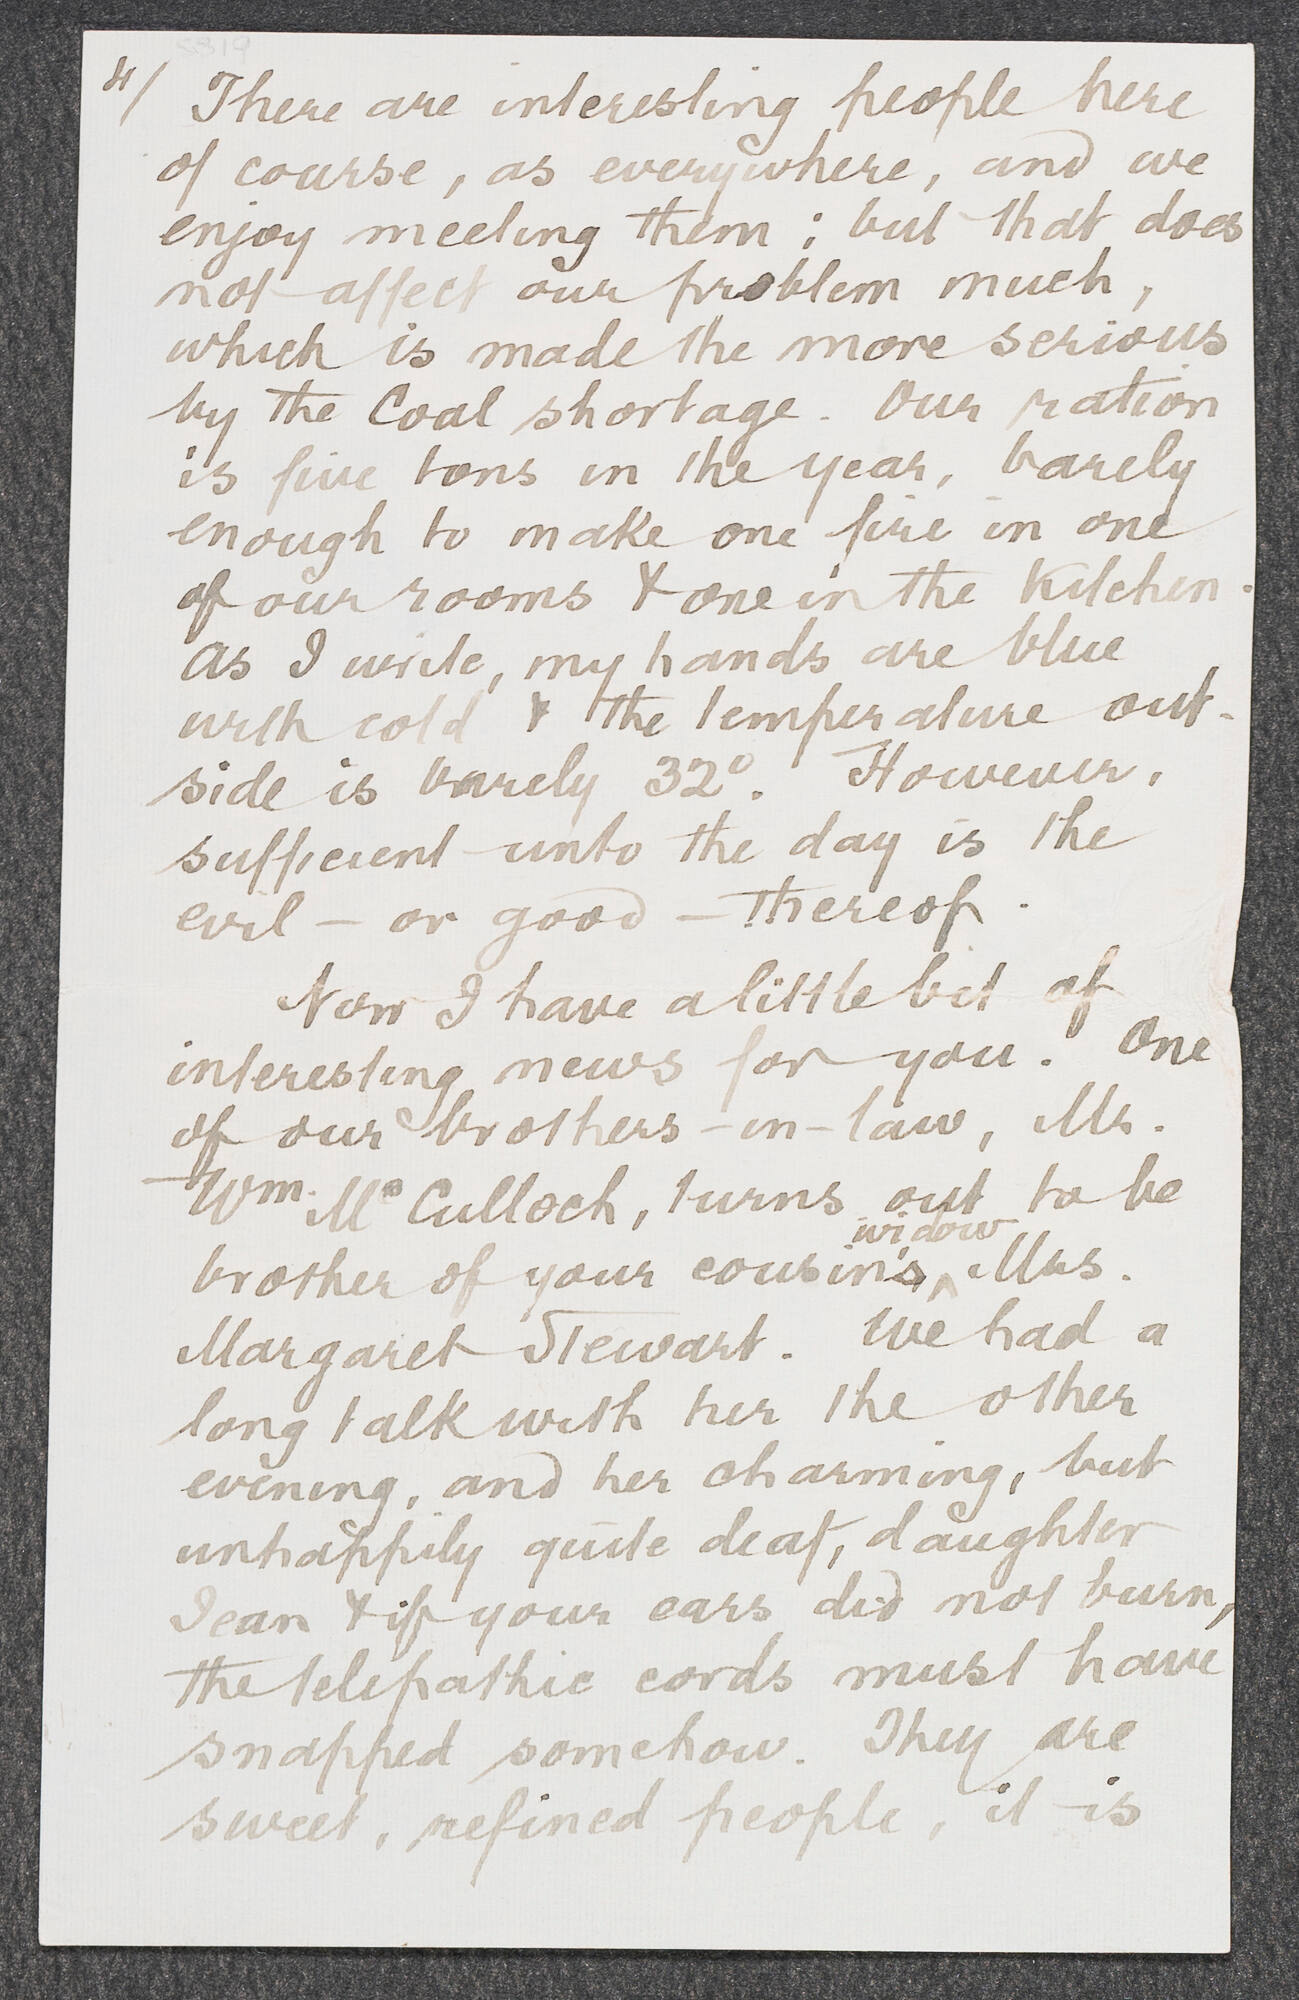 4/ There are interesting people here
of course, as everywhere, and we
enjoy meeting them; but that does
not affect our problem much,
which is made the more serious
by the Coal shortage. Our ration
is five tons in the year, barely
enough to make one fire in one
of our rooms & one in the Kitchen.
As I write, my hands are blue
with cold & the temperature out-
side is barely 32°. However,
sufficient unto the day is the
evil – or good – thereof.
Now I have a little bit of
interesting news for you. One
of our brothers-in-law, Mr.
Wm. McCulloch, turns out to be
widow
brother of your cousin's ^ Mrs.
Margaret Stewart. We had a
long talk with her the other
evening, and her charming, but
unhappily quite deaf, daughter
Jean & if your ears did not burn,
the telepathic cords must have
snapped somehow. They are
sweet, refined people, it is